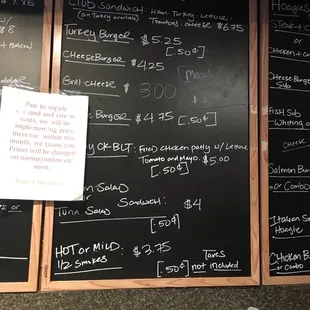 Club Sandwich: Ham, Turkey, Lettuce,
(all Turkey available) Tomatoes, Cheese $6.75
Turkey Burger $5.25
[.50¢]
Cheese Burger $4.25
Grill-Cheese $3.00
Burger $4.75 [.50¢]
CK-BLT: Fried chicken patty w/ Lettuce
Tomato and Mayo. $5.00
[.50¢]
Salad
or Sandwich: $4
Tuna Salad
[.50¢]
HOT or MILD: $3.75
1/2 Smokes
[.50¢] Taxes
not included
Due to supply
demand and rise in
costs, we will be
implementing price
increase within this
month, we thank you.
Prices will be changed
on menus/online etc
soon.
Hoagies
or
Chicken
Cheese Burger
Sub
Fish Sub
Whiting
Cheese
Salmon
or Combo
Italian
Hoagie
Chicken
or Combo